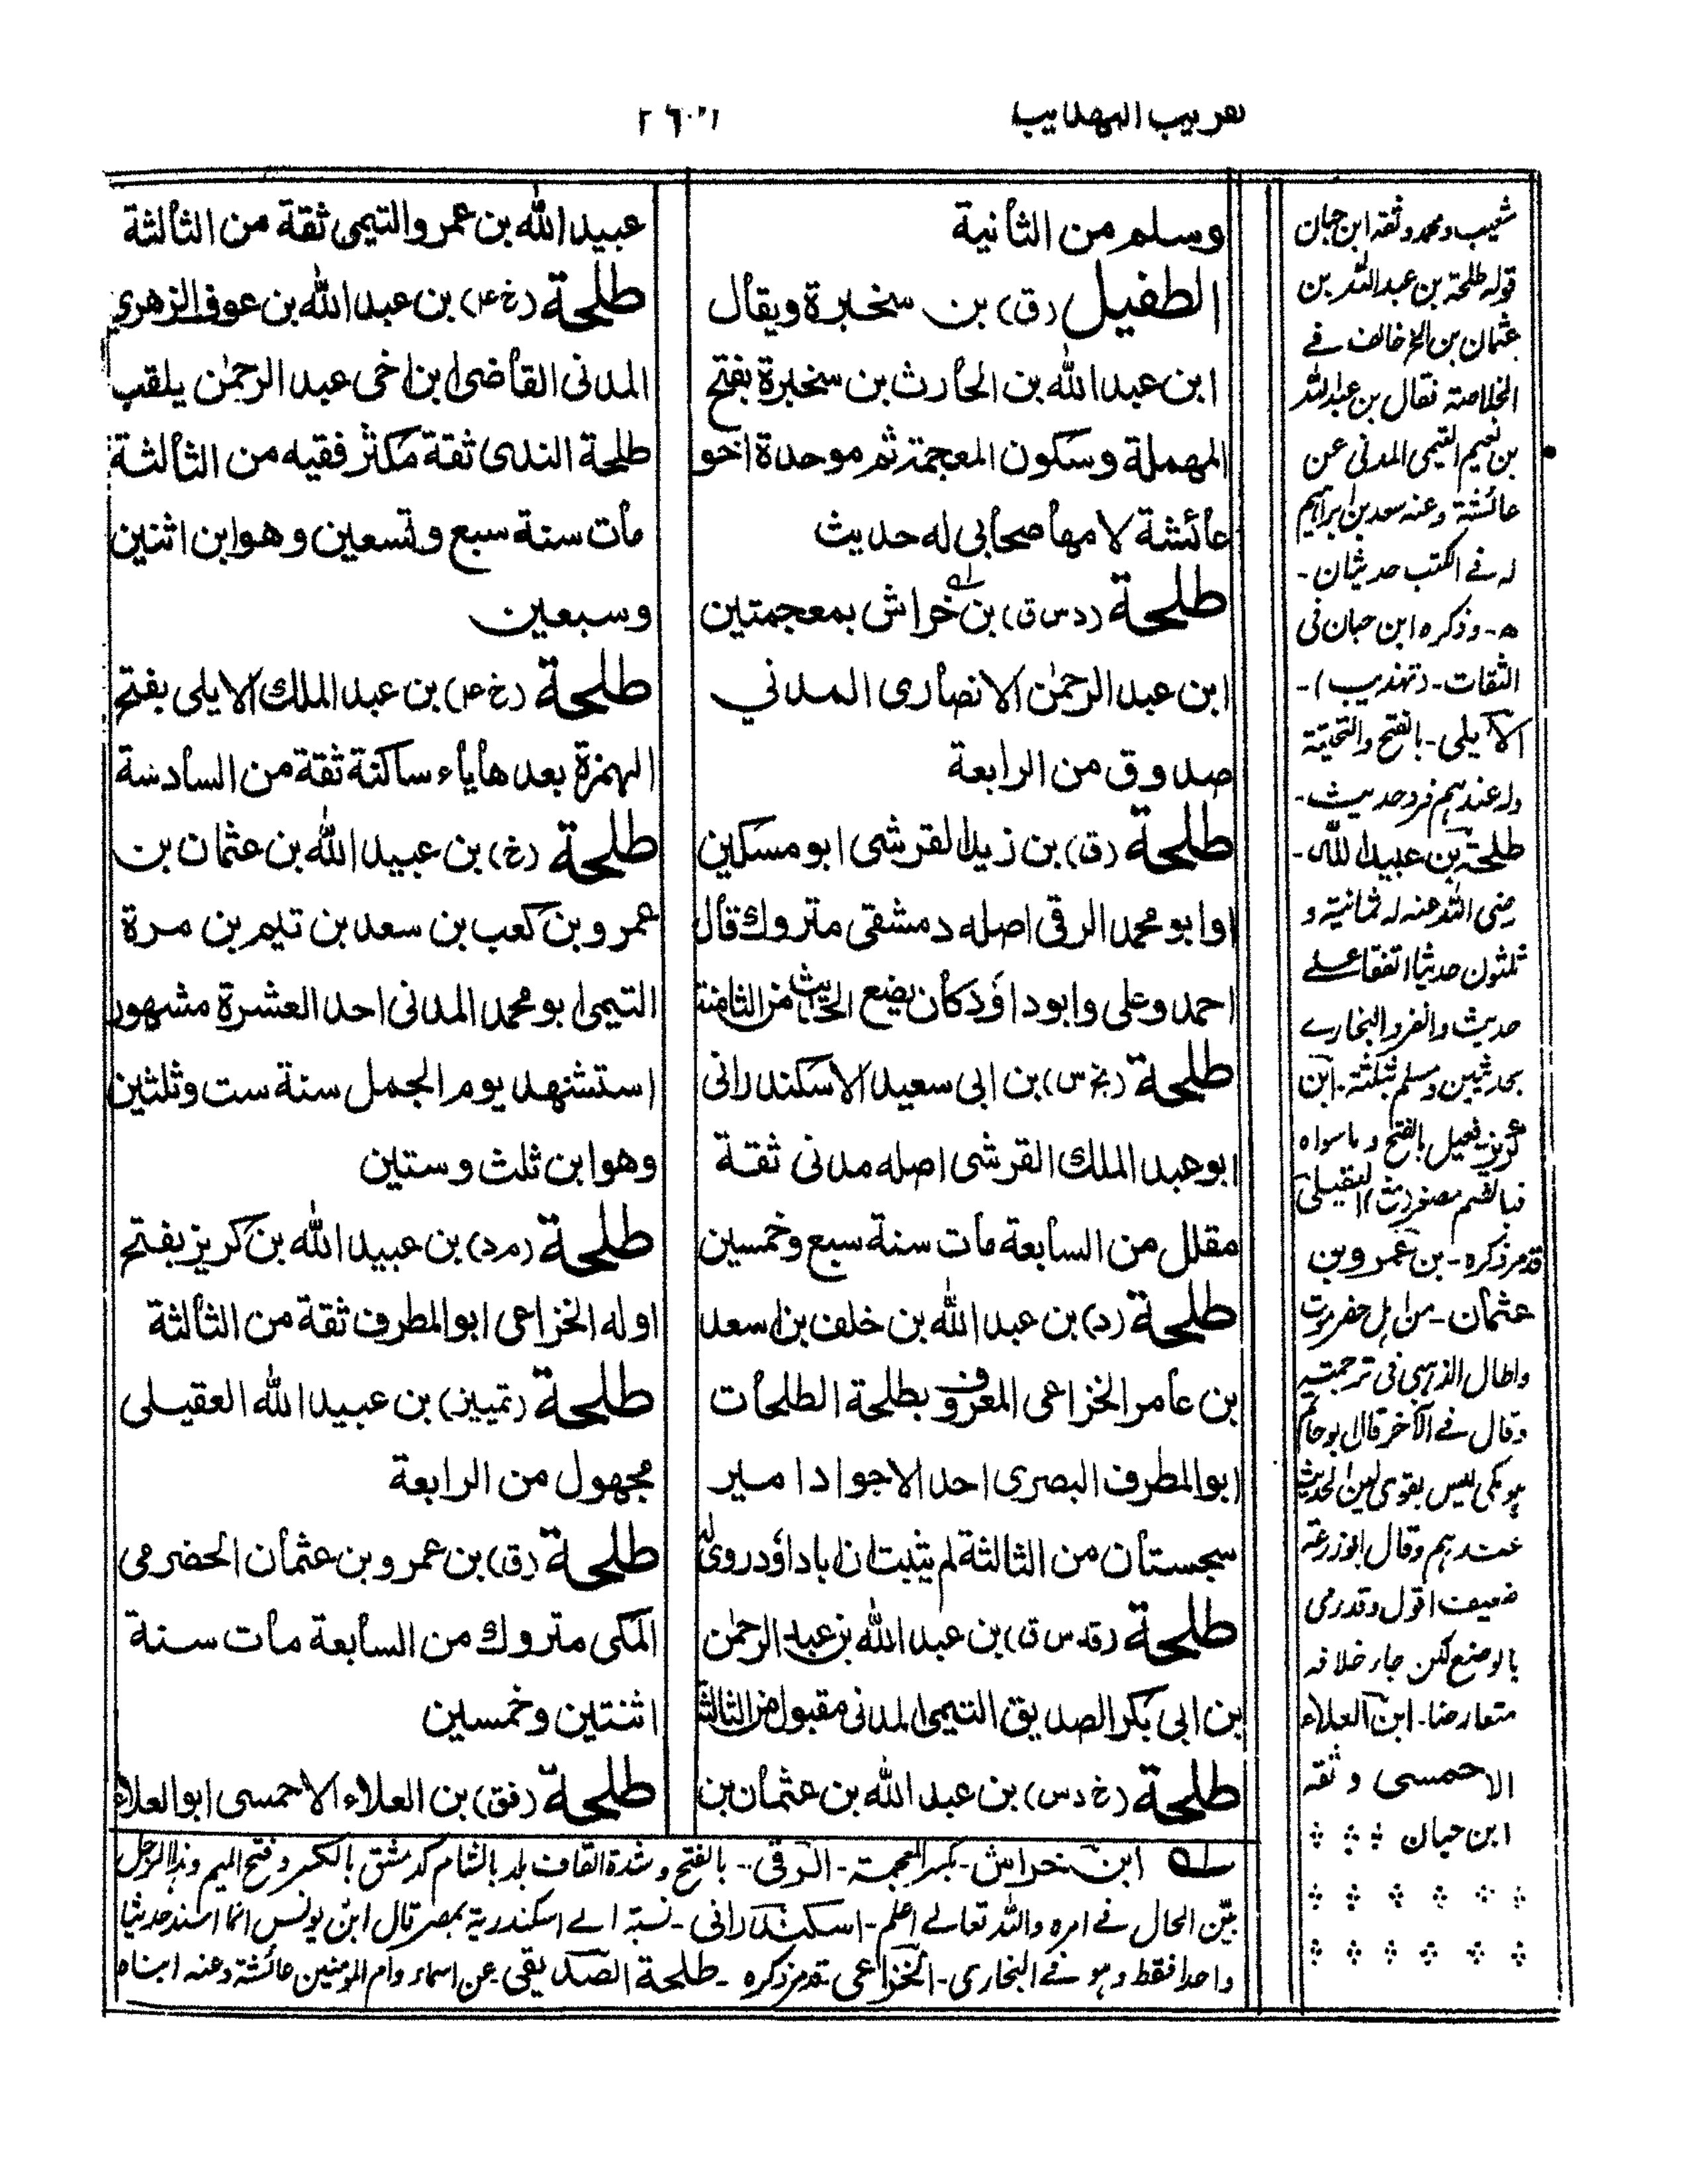 وسلم من الثانية
الطفيل (ق) بن سخبرة ويقال
ابن عبد الله بن الحارث بن سخبرة بفتح
المهملة وسكون المعجمة ثم موحدة اخو
عائشة لامها صحابى له حديث
طلحة (د س ق) بن خراش بمعجمتين
ابن عبد الرحمٰن الانصارى المدني
صدوق من الرابعة
طلحة (ق) بن زيد القرشى ابو مسكين
او ابو محمد الرقى اصله دمشقى متروك قال
احمد وعلى وابو داؤد كان يضع الحديث من الثامنة
طلحة (خ س) بن ابى سعيد الاسكندرانى
ابو عبد الملك القرشى اصله مدنى ثقة
مقلل من السابعة مات سنة سبع وخمسين
طلحة (د) بن عبد الله بن خلف بن اسعد
بن عامر الخزاعى المعروف بطلحة الطلحات
ابو المطرف البصرى احد الاجواد امير
سجستان من الثالثة لم يثبت ان ابا داؤد روى له
طلحة (قد س ق) بن عبد الله بن عبد الرحمٰن
بن ابى بكر الصديق التيمى المدنى مقبول من الثالثة
طلحة (خ د س) بن عبد الله بن عثمان بن
عبيد الله بن عمر والتيمى ثقة من الثالثة
طلحة (خ عـ) بن عبد الله بن عوف الزهري
المدنى القاضى ابن اخى عبد الرحمٰن يلقب
طلحة الندى ثقة مكثر فقيه من الثالثة
مات سنة سبع وتسعين وهو ابن اثنين
وسبعين
طلحة (خ عـ) بن عبد الملك الايلى بفتح
الهمزة بعدها ياء ساكنة ثقة من السادسة
طلحة (خ) بن عبيد الله بن عثمان بن
عمرو بن كعب بن سعد بن تيم بن مرة
التيمى ابو محمد المدنى احد العشرة مشهور
استشهد يوم الجمل سنة ست وثلثين
وهو ابن ثلث وستين
طلحة (م د) بن عبيد الله بن كريز بفتح
اوله الخزاعى ابو المطرف ثقة من الثالثة
طلحة (تمييز) بن عبيد الله العقيلى
مجهول من الرابعة
طلحة (ق) بن عمرو بن عثمان الحضرمى
المكى متروك من السابعة مات سنة
اثنتين وخمسين
طلحة (فق) بن العلاء الاحمسى ابو العلاء
شعيب ومحمد وثقه ابن حبان
قوله طلحة بن عبد الله بن
عثمان بن الخ خالف فے
الخلاصة فقال بن عبد الله
بن نعيم التيمى المدنى عن
عائشة وعنه سعد بن ابراهيم
له فے الكتب حديثان -
ه - وذكره ابن حبان فى
الثقات - (تهذيب) -
الايلى - بالفتح والتحتية
وله عندهم فرد حديث -
طلحة بن عبيد الله -
رضى الله عنه له ثمانية و
ثلثون حديثا اتفقا علے
حديث وانفرد البخارے
بحديثين ومسلم بثلثة - ابن
كريز فعيل بالفتح وما سواه
فبالضم مصغر (ث) العقيلى
قد مر ذكره - بن عمرو بن
عثمان - من اهل حضرموت
واطال الذهبى فى ترجمته
وقال فے الآخر قال ابو حاتم
هو مكى ليس بقوى لين الحديث
عندهم وقال ابو زرعة
ضعيف اقول وقد رمى
بالوضع لكن جاء خلافه
متعارضا - ابن العلاء
الاحمسى وثقه
ابن حبان
له ابن خراش - بكسر المعجمة - الرقى - بالفتح وشدة القاف بلد بالشام كدمشق بالكسر وفتح الميم وهذا الرجل
بيّن الحال فے امره والله تعالے اعلم - اسكندرانى - نسبة الے اسكندرية بمصر قال ابن يونس انما اسند حديثا
واحدا فقط وهو فے البخارى - الخزاعى قد مر ذكره - طلحة الصديقى عن اسماء وام المومنين عائشة وعنه ابناه